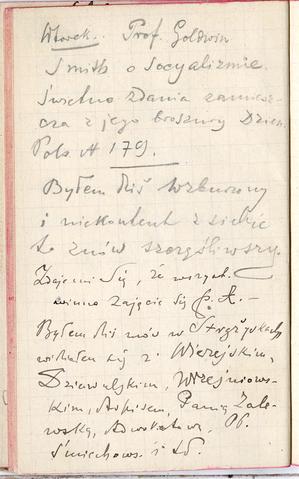 Wtorek. Prof. Goldwin
Smith o socyalizmie.
Świetne zdania zamiesz-
cza z jego broszury Dzien.
Pols. № 179.
Byłem dziś wzburzony
i niekontent z siebie
to znów szczęśliwszy.
Zdaje mi się, że wszyst.
winno zająć się
Byłem dziś znów w Strzyżykach
widziałem się z Wierzejskim,
Dziewulskim, Wrześniows-
kim, Askisem, Panią Zale-
wską,
Śmiechows. i td.